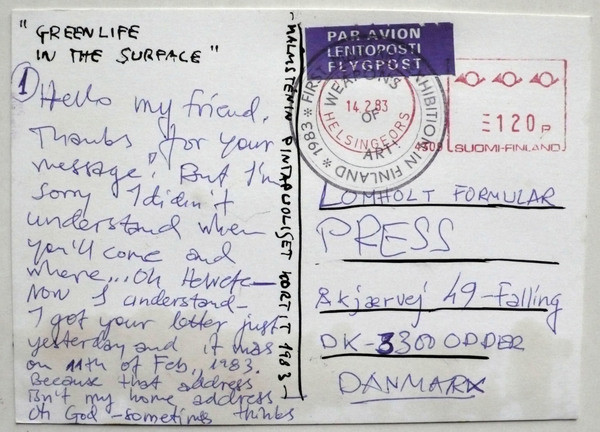 "GREENLIFE
IN THE SURFACE"
1
Hello my friend,
Thanks for your
message! But I'm
sorry I didn't
understand when
you'll come and
where... Oh Helvete—
Now I understand—
I got your letter just
yesterday and it was
on 11th of Feb, 1983.
Because that address
isn't my home address
Oh God—sometimes thinks
MALMSTENIN PINTAPUOLISET KORTIT 1983
PAR AVION
LENTOPOSTI
FLYGPOST
1983 * FIRST EXHIBITION IN FINLAND *
WEAPONS
OF
ART!
14.2.83
HELSINGFORS
120 P
SUOMI-FINLAND
LOMHOLT FORMULAR
PRESS
Skjærvej 49-Falling
DK-3300 ODDER
DANMARK